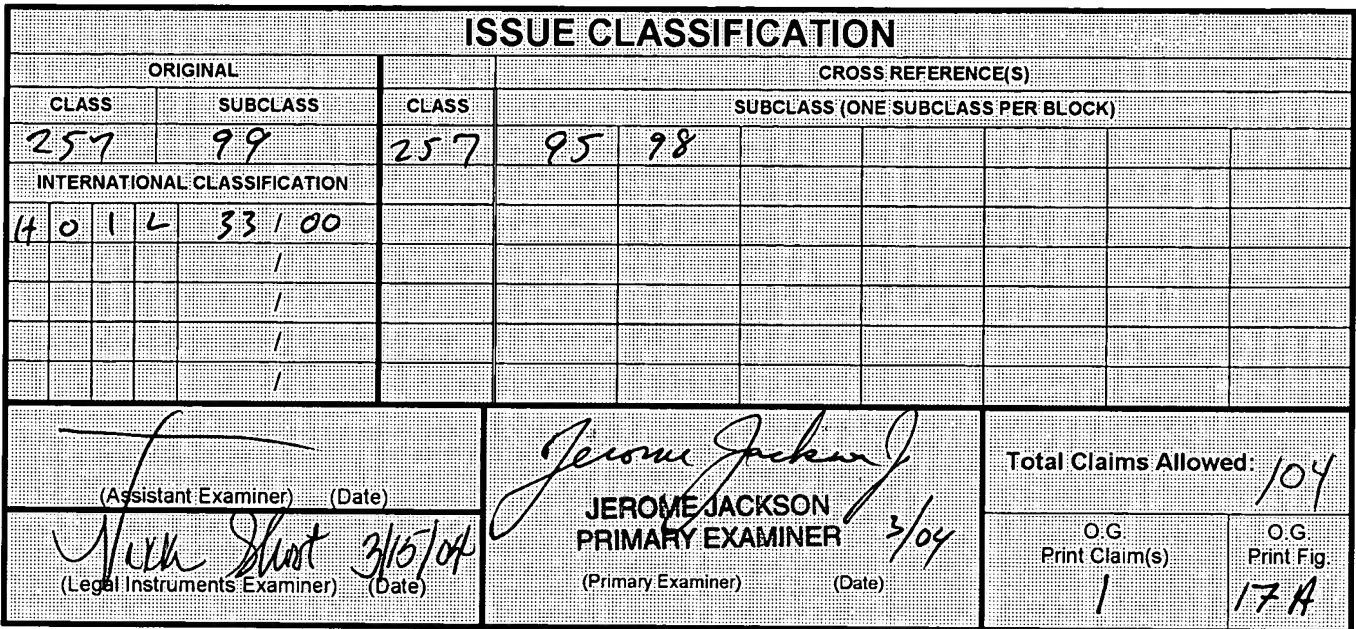 ISSUE CLASSIFICATION
ORIGINAL CROSS REFERENCE(S)
CLASS SUBCLASS CLASS SUBCLASS (ONE SUBCLASS PER BLOCK)
257 99 257 95 98
INTERNATIONAL CLASSIFICATION
H 0 1 L 33 / 00
/
/
/
/
(Assistant Examiner) (Date)
3/15/04
(Legal Instruments Examiner) (Date)
Jerome Jackson Jr
JEROME JACKSON
PRIMARY EXAMINER 3/04
(Primary Examiner) (Date)
Total Claims Allowed: 104
O.G.
Print Claim(s)
1
O.G.
Print Fig.
17A